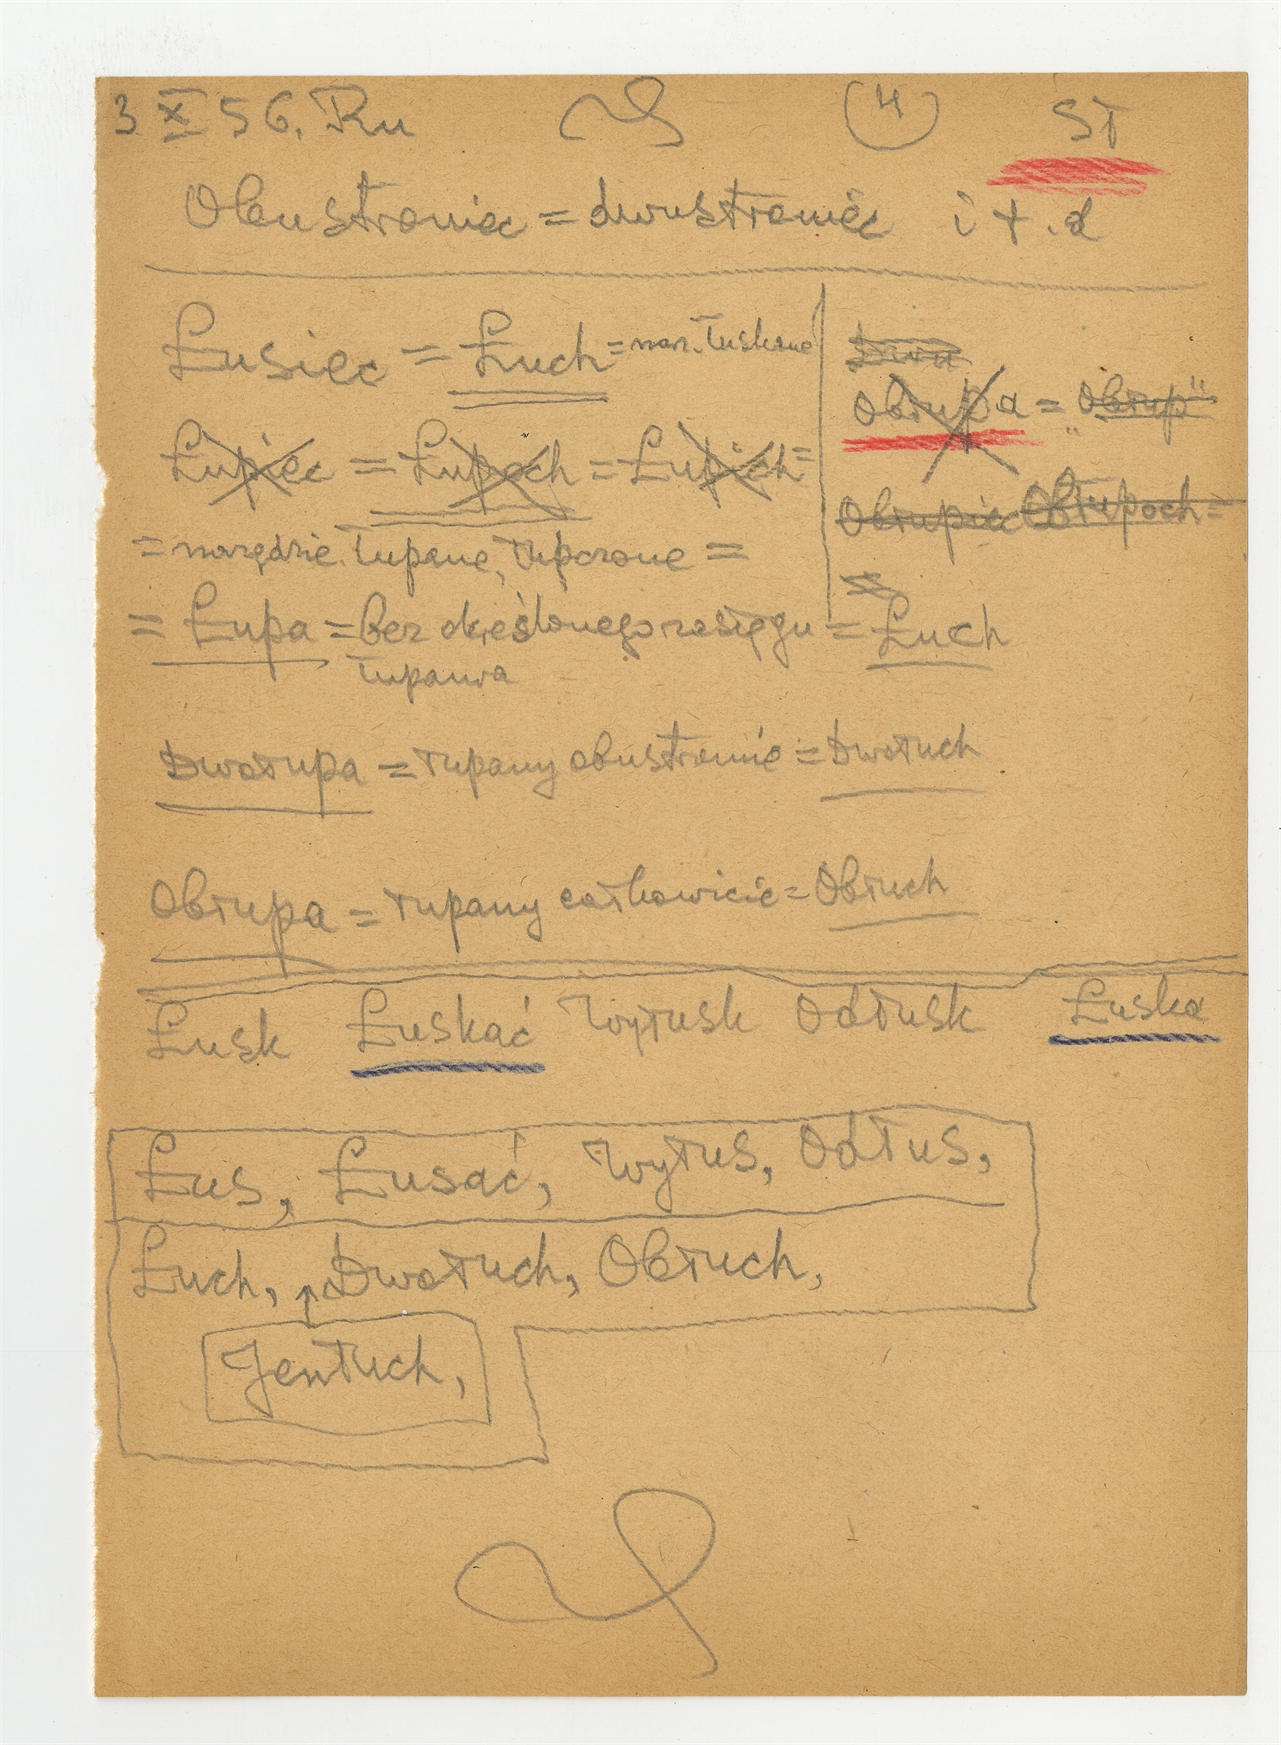 3 X 56. Ru (4) ST
Obustroniec = dwustroniec i t. d
Łusiec = Łuch = narz. łuskane
Łupiec = Łupoch = Łupich =
= narzędzie łupane, łupczone =
= Łupa = bez określonego zasięgu = Łuch
łupania
Dwa
Obłupa = „Obłup"
Obłupiec Obłupoch =
=
Dwołupa = łupany obustronnie = Dwołuch
Obłupa = łupany całkowicie = Obłuch
Łusk Łuskać Wyłusk Odłusk Łuska
Łus, Łusać, Wyłus, Odłus,
Łuch, Dwołuch, Obłuch,
Jenłuch,